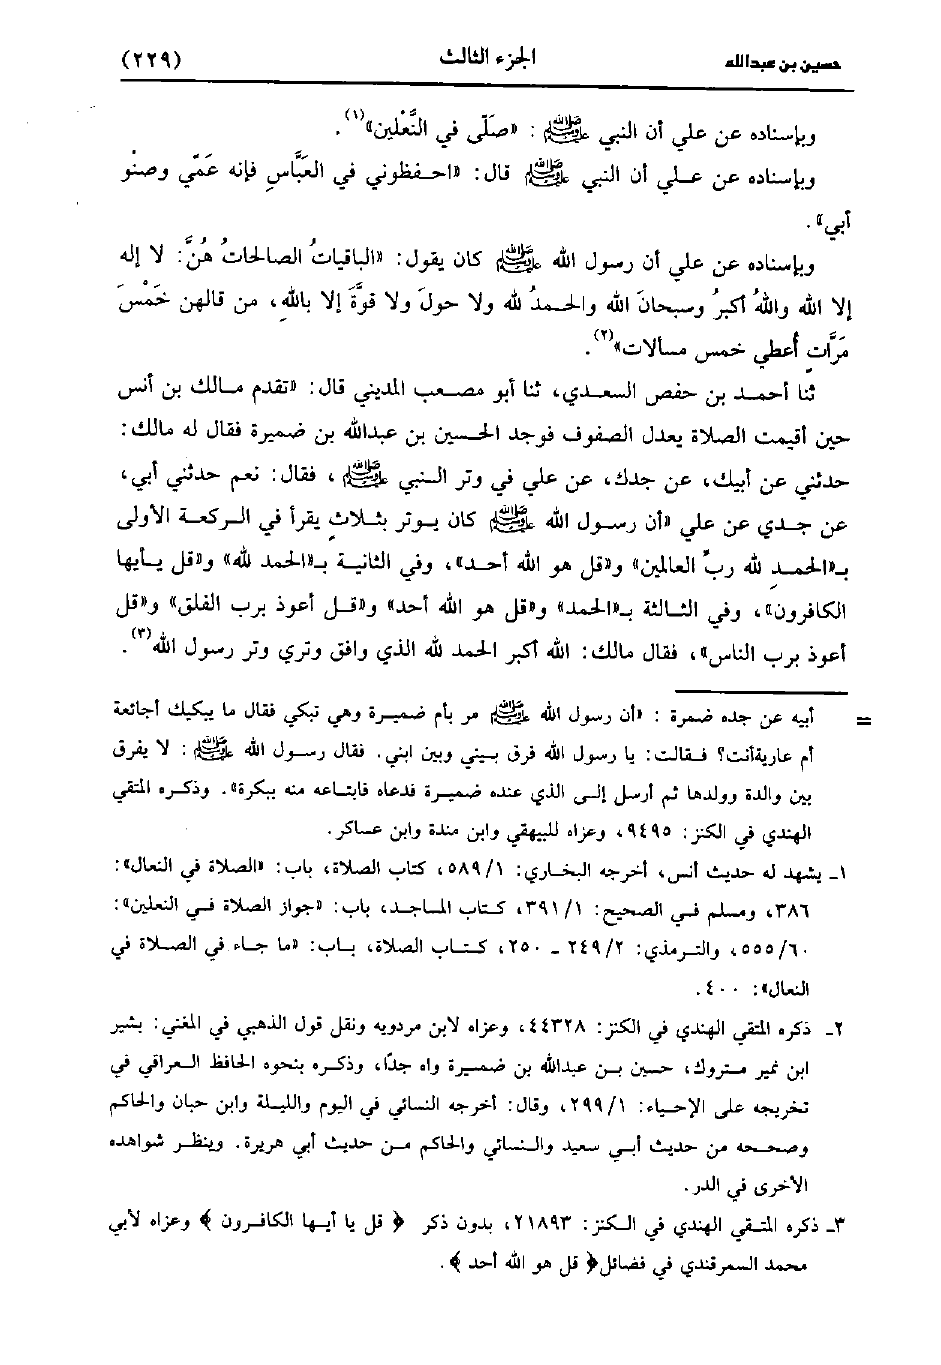 حسين بن عبدالله الجزء الثالث (٢٢٩)
وبإسناده عن علي أن النبي ﷺ : «صَلّى في النَّعْلين»(١).
وبإسناده عن عـلي أن النبي ﷺ قال: «احـفظوني في العبَّاسِ فإنه عَمّي وصنْو
أبي».
وبإسناده عن علي أن رسول الله ﷺ كان يقول: «الباقياتُ الصالحاتُ هُنَّ: لا إله
إلا الله واللهُ أكبرُ وسبحانَ الله والحمدُ لله ولا حولَ ولا قوةَ إلا باللهِ، من قالهن خَمْسَ
مَرَّاتٍ أُعطي خمس مسالات»(٢).
ثنا أحمـد بن حفص السعـدي، ثنا أبو مصـعب المديني قال: «تقدم مـالك بن أنس
حين أقيمت الصلاة يعدل الصفوف فوجد الحسين بن عبدالله بن ضميرة فقال له مالك:
حدثني عن أبيك، عن جدك، عن علي في وتر النـبي ﷺ ، فقال: نعم حدثني أبي،
عن جـدي عن علي «أن رسول الله ﷺ كان يـوتر بثلاثٍ يقرأ في الـركعة الأولى
بـ«الحمـدِ لله ربِّ العالمين» و«قل هو الله أحد»، وفي الثانية بـ«الحمد لله» و«قل يـأيها
الكافرون»، وفي الثـالثة بـ«الحمد» و«قل هو الله أحد» و«قـل أعوذ برب الفلق» و«قل
أعوذ برب الناس»، فقال مالك: الله أكبر الحمد لله الذي وافق وتري وتر رسول الله(٣).
= أبيه عن جده ضمرة : «أن رسول الله ﷺ مر بأم ضميرة وهي تبكي فقال ما يبكيك أجائعة
أم عاريةأنت؟ فـقالت: يا رسول الله فرق بـيني وبين ابني. فقال رسـول الله ﷺ : لا يفرق
بين والدة وولدها ثم أرسل إلـى الذي عنده ضميـرة فدعاه فابتـاعه منه ببكرة». وذكـره المتقي
الهندي في الكنز: ٩٤٩٥، وعزاه للبيهقي وابن مندة وابن عساكر.
١ـ يشهد له حديث أنس، أخرجه البخاري: ٥٨٩/١، كتاب الصلاة، باب: «الصلاة في النعال»:
٣٨٦، ومسلم فـي الصحيح: ٣٩١/١، كـتاب المساجـد، باب: «جواز الصلاة فـي النعلين»:
٥٥٥/٦٠، والتـرمذي: ٢٤٩/٢ ـ ٢٥٠، كـتـاب الصلاة، بـاب: «ما جـاء في الصـلاة في
النعال»: ٤٠٠.
٢ـ ذكره المتقي الهندي في الكنز: ٤٤٣٢٨، وعزاه لابن مردويه ونقل قول الذهبي في المغني: بشير
ابن نمير متـروك، حسين بـن عبدالله بن ضميرة واه جدًا، وذكـره بنحوه الحافظ الـعراقي في
تخريجه على الإحياء: ٢٩٩/١، وقال: أخرجه النسائي في اليوم والليلة وابن حبان والحاكم
وصـحـحه من حديث أبـي سعيد والـنسائي والحاكم مـن حديث أبي هريرة. وينظـر شواهده
الأخرى في الدر.
٣ـ ذكره المتـقي الهندي في الـكنز: ٢١٨٩٣، بدون ذكر ﴿ قل يا أيـها الكافرون ﴾ وعزاه لأبي
محمد السمرقندي في فضائل﴿ قل هو الله أحد ﴾.